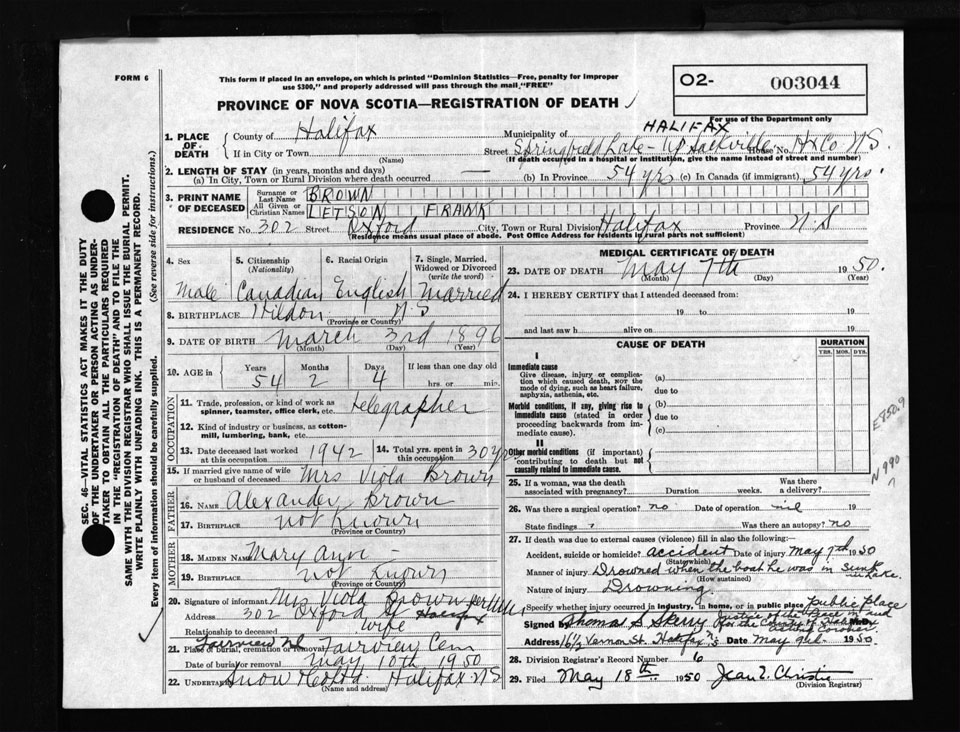 FORM 6
This form if placed in an envelope, on which is printed "Dominion Statistics—Free, penalty for improper
use $300," and properly addressed will pass through the mail "FREE"
PROVINCE OF NOVA SCOTIA—REGISTRATION OF DEATH
O2- 003044
For use of the Department only
1. PLACE OF DEATH
County of Halifax
Municipality of HALIFAX
If in City or Town (Name)
Street Springfield Lake - Up Sackville House No. Hx Co N.S.
(If death occurred in a hospital or institution, give the name instead of street and number)
2. LENGTH OF STAY (in years, months and days)
(a) In City, Town or Rural Division where death occurred — (b) In Province 54 yrs (c) In Canada (if immigrant) 54 yrs.
3. PRINT NAME OF DECEASED
Surname or Last Name BROWN
All Given or Christian Names LETSON FRANK
RESIDENCE No. 302 Street Oxford City, Town or Rural Division Halifax Province N.S
(Residence means usual place of abode. Post Office Address for residents in rural parts not sufficient)
4. Sex
Male
5. Citizenship (Nationality)
Canadian
6. Racial Origin
English
7. Single, Married, Widowed or Divorced (write the word)
Married
8. BIRTHPLACE N.S
(Province or Country)
9. DATE OF BIRTH March 3rd 1896
(Month) (Day) (Year)
10. AGE in
Years 54
Months 2
Days 4
If less than one day old
hrs. or min.
OCCUPATION
11. Trade, profession, or kind of work as
spinner, teamster, office clerk, etc. telegrapher
12. Kind of industry or business, as cotton-
mill, lumbering, bank, etc.
13. Date deceased last worked
at this occupation 1942
14. Total yrs. spent in
this occupation 30 yrs
15. If married give name of wife
or husband of deceased Mrs Viola Brown
FATHER
16. Name Alexander Brown
17. BIRTHPLACE not known
(Province or Country)
MOTHER
18. MAIDEN NAME Mary Ann -
19. BIRTHPLACE not known
(Province or Country)
20. Signature of informant Mrs Viola Brown
Address 302 Oxford St Halifax
Relationship to deceased wife
21. Place of burial, cremation or removal Fairview Cem
Fairview
Date of burial or removal May 10th 1950
22. UNDERTAKER Snow Halifax N.S
(Name and address)
MEDICAL CERTIFICATE OF DEATH
23. DATE OF DEATH May 7th 1950.
(Month) (Day) (Year)
24. I HEREBY CERTIFY that I attended deceased from:
19 to 19
and last saw h alive on 19
CAUSE OF DEATH
DURATION
YRS. MOS. DYS.
I
Immediate cause
Give disease, injury or complica-
tion which caused death, NOT the
mode of dying, such as heart failure,
asphyxia, asthenia, etc.
(a)
due to
Morbid conditions, if any, giving rise to
immediate cause (stated in order
proceeding backwards from im-
mediate cause).
(b)
due to
(c)
II
Other morbid conditions (if important)
contributing to death but not
causally related to immediate cause.
E850.9
N990
25. If a woman, was the death
associated with pregnancy? Duration weeks. Was there
a delivery?
26. Was there a surgical operation? no Date of operation nil 19
State findings Was there an autopsy? no
27. If death was due to external causes (violence) fill in also the following:—
Accident, suicide or homicide? accident Date of injury May 7th 1950
(State which)
Manner of injury Drowned when the boat he was in sunk in Lake.
(How sustained)
Nature of injury Drowning.
Specify whether injury occurred in industry, in home, or in public place public place
Signed Thomas S. Skerry Justice of the Peace in and
for the County of Halifax
Acting Coroner
Address 16 1/2 Vernon St. Halifax N.S Date May 9th 1950
28. Division Registrar's Record Number 6
29. Filed May 18th 1950 Jean Z. Christie
(Division Registrar)
SEC. 46—VITAL STATISTICS ACT MAKES IT THE DUTY
OF THE UNDERTAKER OR PERSON ACTING AS UNDER-
TAKER TO OBTAIN ALL THE PARTICULARS REQUIRED
IN THE "REGISTRATION OF DEATH" AND TO FILE THE
SAME WITH THE DIVISION REGISTRAR WHO SHALL ISSUE THE BURIAL PERMIT.
WRITE PLAINLY WITH UNFADING INK. THIS IS A PERMANENT RECORD.
Every item of information should be carefully supplied. (See reverse side for instructions.)